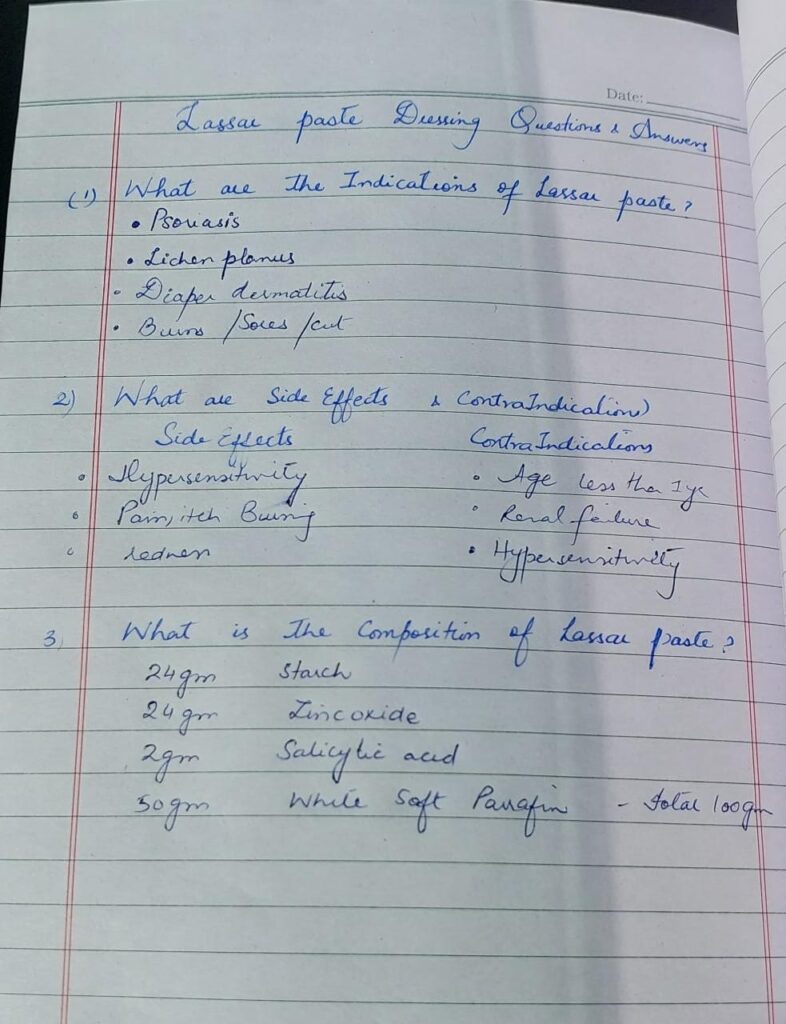 Date:
Lassar paste Dressing Questions & Answers
(1) What are the Indications of Lassar paste?
• Psoriasis
• Lichen planus
• Diaper dermatitis
• Burns /Sores /cut
2) What are Side Effects & ContraIndications)
Side Effects ContraIndications
• Hypersensitivity • Age less tha 1yr
• Pain, itch Burning • Renal failure
• redness • Hypersensitivity
3) What is the Composition of Lassar paste?
24gm Starch
24gm Zinc oxide
2gm Salicylic acid
50gm White Soft Parrafin - total 100gm